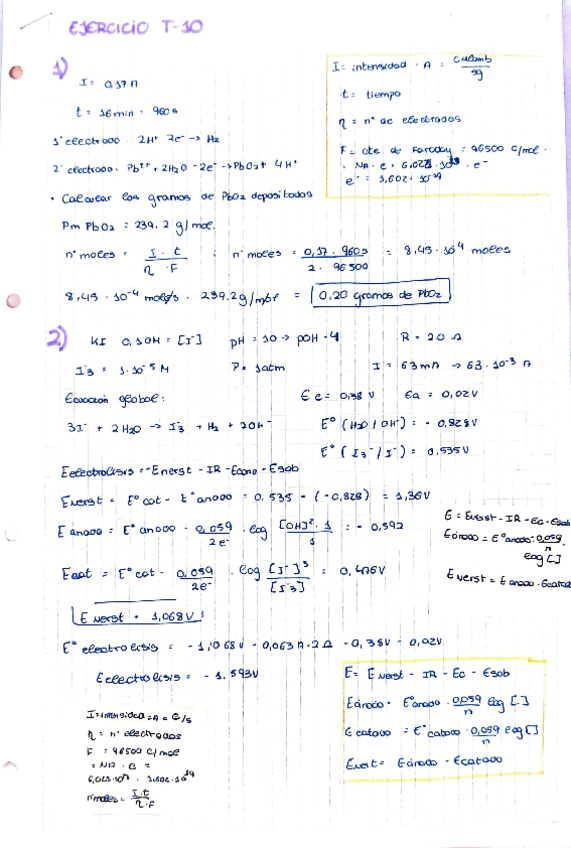 EJERCICIO T-10
1)
I = 0,17 A
t = 16 min = 960s
1º electrodo: 2H⁺ 2e⁻ → H₂
2º electrodo: Pb²⁺ + 2H₂O - 2e⁻ → PbO₂ + 4H⁺
• Calcular los gramos de PbO₂ depositados
Pm PbO₂ = 239,2 g/mol.
nº moles = I · t / η · F ; nº moles = 0,17 · 960s / 2 · 96500 = 8,45 · 10⁻⁴ moles
8,45 · 10⁻⁴ moles · 239.2g/mol = 0,20 gramos de PbO₂
I = intensidad = A =
t = tiempo
η = nº de electrodos
F = cte de Faraday = 96500 C/mol =
2)
KI 0,10M = [I⁻] pH = 10 → pOH = 4 R = 2.0 Ω
I₃⁻ = 1·10⁻⁵ M P = 1atm I = 63mA → 63·10⁻³ A
Ecuación global: Ec = 0,38 V Ea = 0,02V
3I⁻ + 2H₂O → I₃⁻ + H₂ + 2OH⁻ E° (H₂O / OH⁻) = - 0,828V
E° (I₃⁻ / I⁻) = 0,535V
Enerst = E° cat - E° anodo = 0.535 - (-0,828) = 1,36V
E anodo = E° anodo - 0,059 / 2e⁻ · log [OH]² · 1 / 1 = - 0,592
Ecat = E° cat - 0,059 / 2e⁻ · log [I⁻]³ / [I₃⁻] = 0,476V
E nerst = 1,068V
E° electrolisis = - 1,068V - 0,063A · 2Ω - 0,38V - 0,02V
E electrolisis = - 1.593V
E = Enerst - IR - Ec - Esob
E nerst = E anodo - Ecatod
E = Enerst - IR - Ec - Esob
Eánodo = E°anodo - 0,059 / n log [ ]
E catodo = E° catodo - 0,059 / n log [ ]
I = intensidad = A = C/s
η = nº electrodos
F = 96500 C/mol
nº moles = I · t / η · F